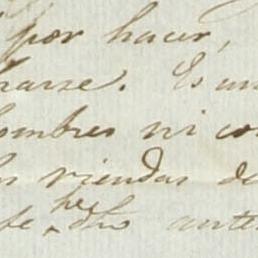 por hacer,
harse. Es un
hombres ni con
las riendas de
he dho ante